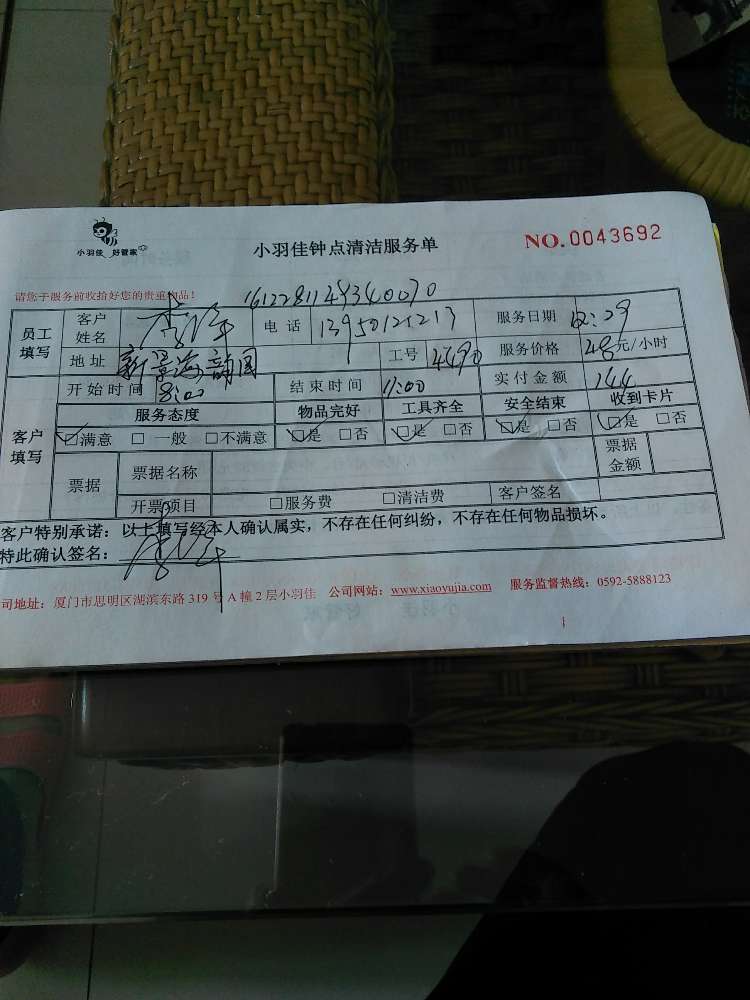 小羽佳 好管家
小羽佳钟点清洁服务单
NO.0043692
请您于服务前收拾好您的贵重物品!
1612281149340070
员工填写 客户姓名 电话 13950121213 服务日期
地址 新景海韵园 工号 4690 服务价格 48元/小时
开始时间 8:00 结束时间 11:00 实付金额 144
客户填写 服务态度 物品完好 工具齐全 安全结束 收到卡片
☑满意 □一般 □不满意 ☑是 □否 ☑是 □否 ☑是 □否 ☑是 □否
票据 票据名称 票据金额
开票项目 □服务费 □清洁费 客户签名
客户特别承诺：以上填写经本人确认属实，不存在任何纠纷，不存在任何物品损坏。
特此确认签名：
司地址：厦门市思明区湖滨东路319号A幢2层小羽佳 公司网站：www.xiaoyujia.com 服务监督热线：0592-5888123